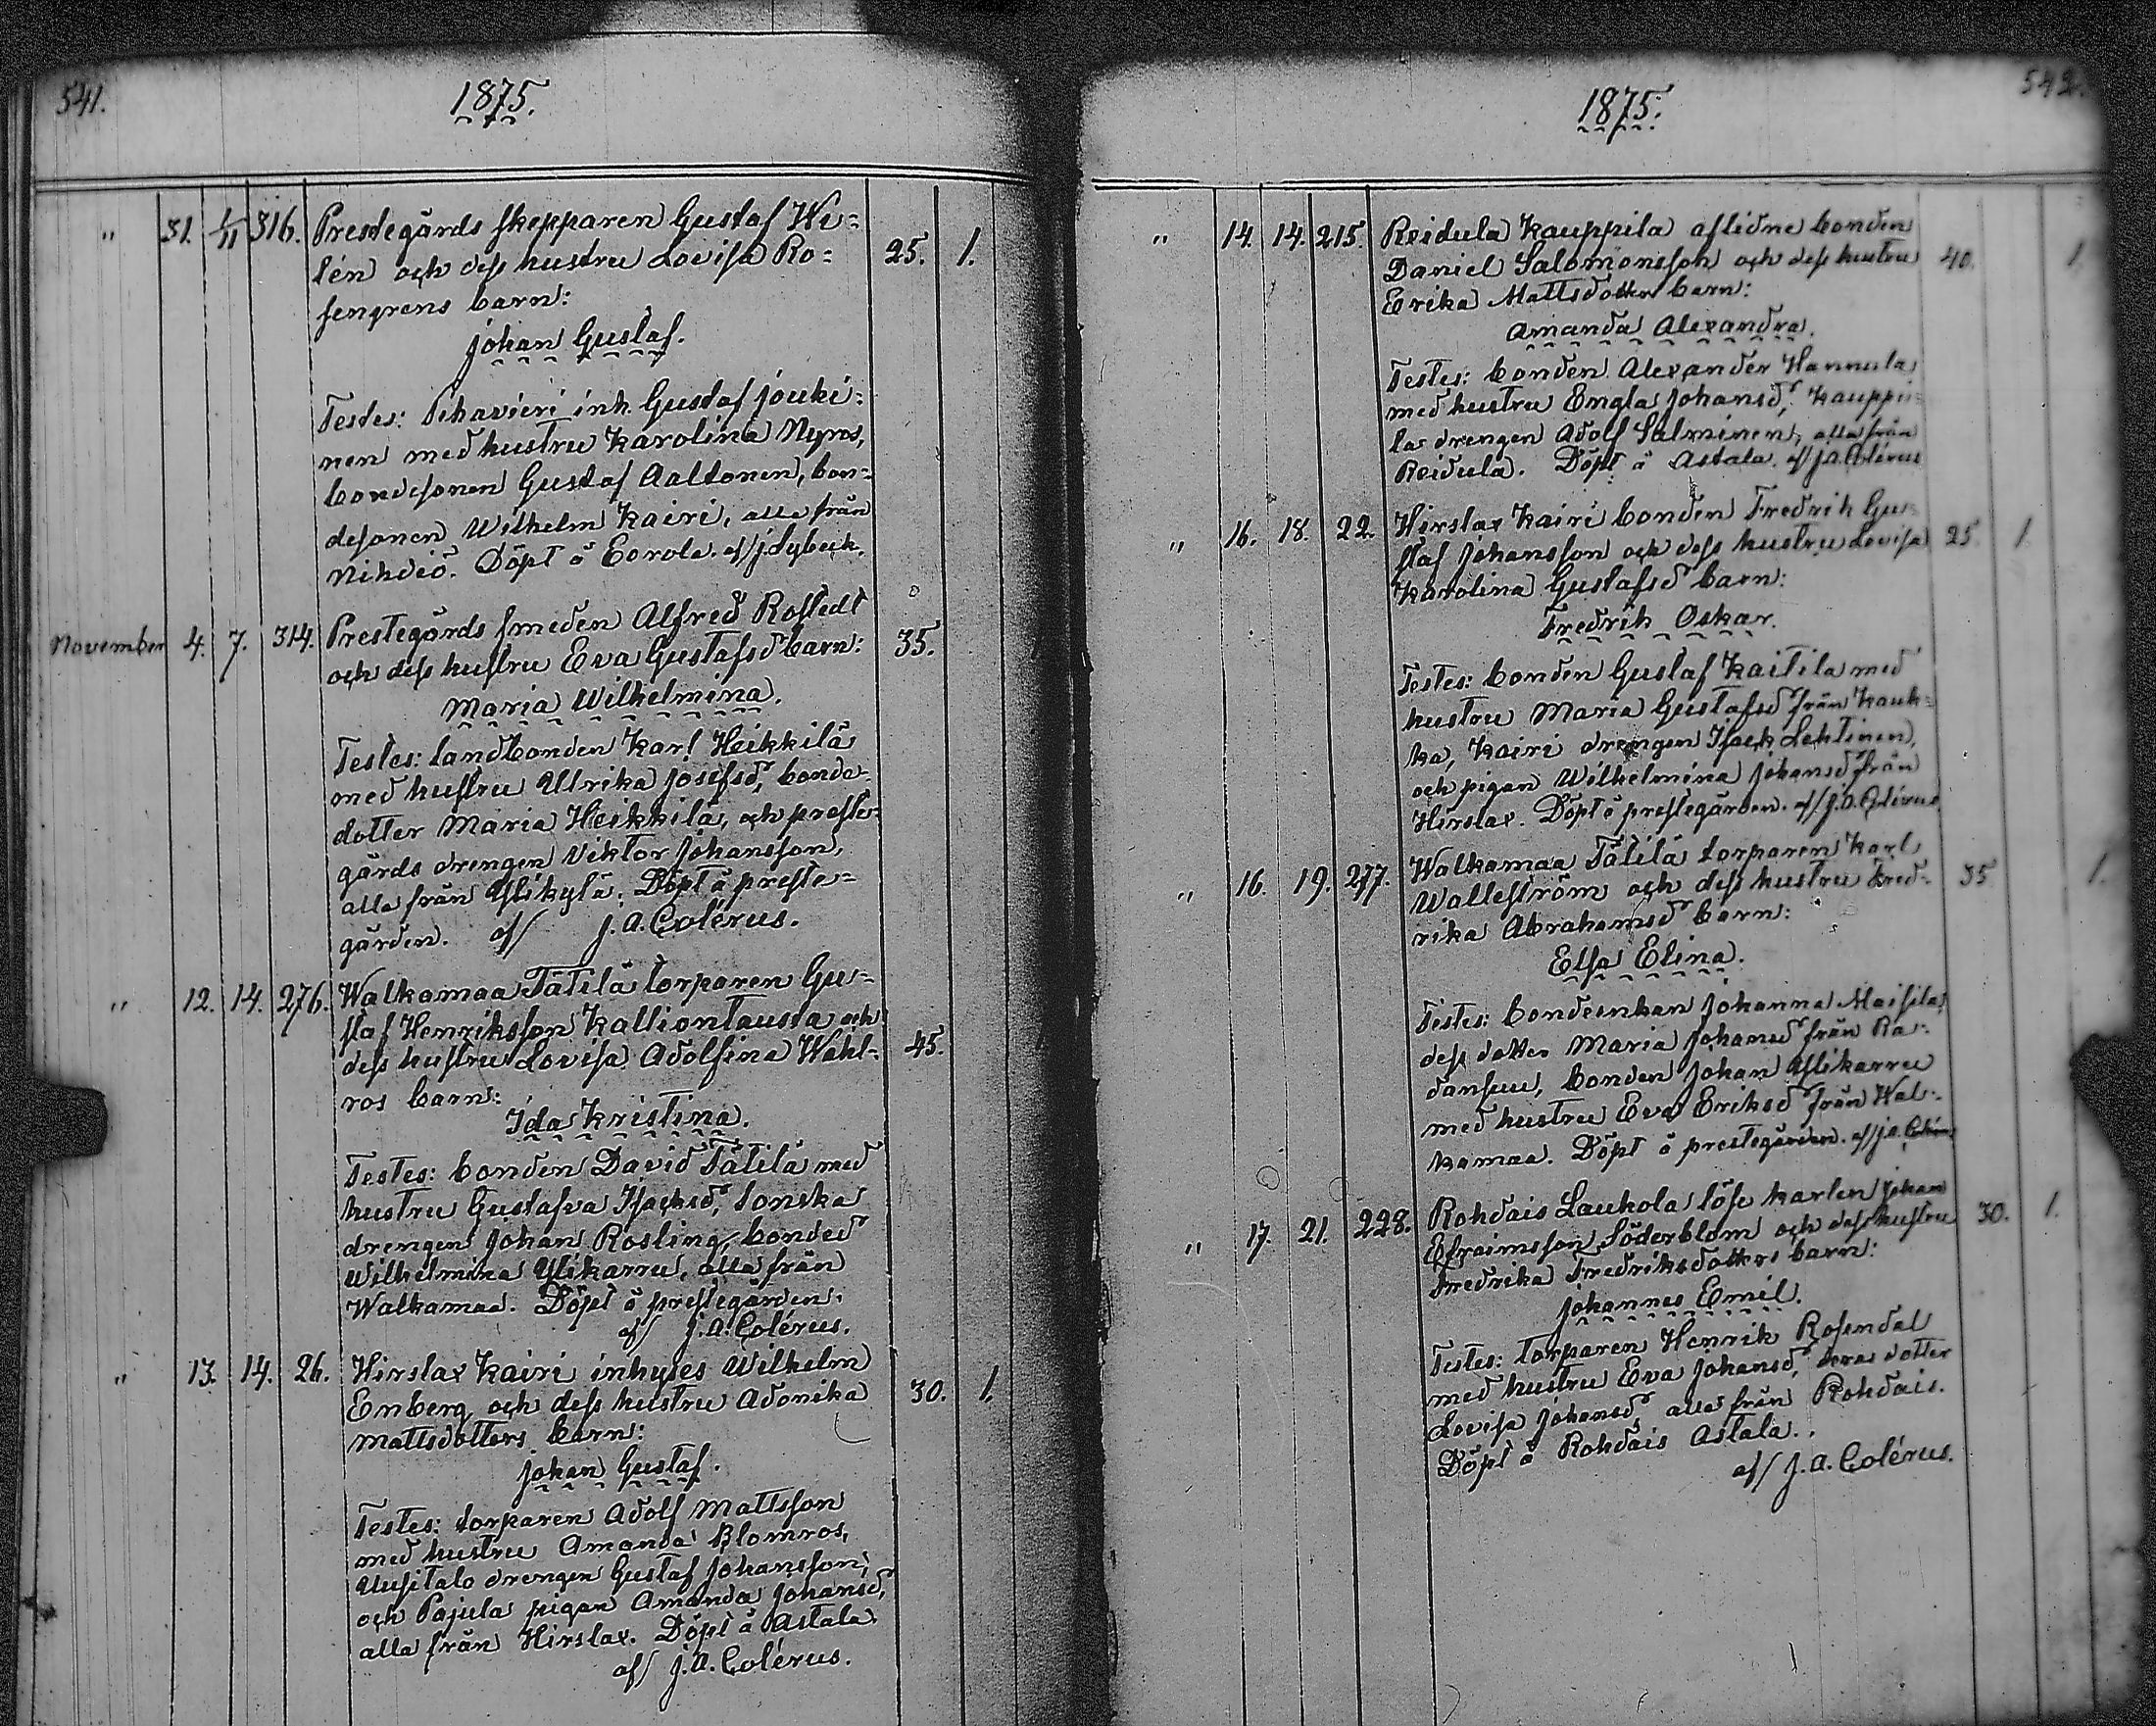 541.
1875.
" 31. 1/11 316. Prestegårds skepparen Gustaf We=
lén och dess hustru Lovisa Ro= 25. 1.
sengrens barn:
Johan Gustaf.
Testes: Pihavieri inh. Gustaf Jouki=
nen med hustru Karolina Nyros,
bondesonen Gustaf Aaltonen, bon=
desonen Wilhelm Kairi, alla från
Nihdiö. Döpt å Eorola. af/ J. Lybeck.
November 4. 7. 314. Prestegårds smeden Alfred Rostedt
och dess hustru Eva Gustafsd barn: 35.
Maria Wilhelmina.
Testes: landbonden Karl Heikkilä
med hustru Ulrika Josefsd, bonde=
dotter Maria Heikkilä, och preste=
gårds drengen Viktor Johansson,
alla från Ylikylä. Döpt å preste=
gården. af/ J. A. Colérus.
" 12. 14. 276. Walkamaa Tätilä torparen Gu=
staf Henriksson Kalliontausta och
dess hustru Lovisa Adolfina Wahl= 45.
ros barn:
Ida Kristina.
Testes: bonden David Tätilä med
hustru Gustafva Isacksd, Sonska
drengen Johan Rosling, bonded
Wilhelmina Ylikarru, alla från
Walkamaa. Döpt å prestegården.
af/ J. A. Colérus.
" 13. 14. 26. Hirslax Kairi inhyses Wilhelm
Enberg och dess hustru Adonika 30. 1.
Mattsdotters barn:
Johan Gustaf.
Testes: torparen Adolf Mattsson
med hustru Amanda Blomros,
Uusitalo drengen Gustaf Johansson,
och Pajula pigan Amanda Johansd,
alla från Hirslax. Döpt å Astala.
af/ J. A. Colérus.
542.
1875.
" 14. 14. 215. Reidula Kauppila aflidne bonden
Daniel Salomonsson och dess hustru 40. 1.
Erika Mattsdotters barn:
Amanda Alexandra.
Testes: bonden Alexander Hannula
med hustru Engla Johansd, Kauppi=
la drengen Adolf Salminen, alla från
Reidula. Döpt å Astala. af/ J. A. Colérus
" 16. 18. 22. Hirslax Kairi bonden Fredrik Gu=
staf Johansson och dess hustru Lovisa 25. 1.
Karolina Gustafsd barn:
Fredrik Oskar.
Testes: bonden Gustaf Kaitila med
hustru Maria Gustafsd från Kauk=
ka, Kairi drengen Isack Lehtinen,
och pigan Wilhelmina Johansd från
Hirslax. Döpt å prestegården. af/ J. A. Colérus
" 16. 19. 277. Walkamaa Tätilä torparen Karl
Wallström och dess hustru Fred= 35 1.
rika Abrahamsd barn:
Elsa Elina.
Testes: bondeenkan Johanna Maisila,
dess dotter Maria Johansd från Ra=
dansuu, bonden Johan Ylikarru
med hustru Eva Eriksd från Wal=
kamaa. Döpt å prestegården. af/ J. A. Colérus
" 17. 21. 228. Rohdais Laukola löse karlen Johan
Efraimsson Söderblom och dess hustru 30. 1.
Fredrika Fredriksdotters barn:
Johannes Emil.
Testes: torparen Henrik Rosendal
med hustru Eva Johansd, deras dotter
Lovisa Johansd, alla från Rohdais.
Döpt å Rohdais Astala.
af/ J. A. Colérus.